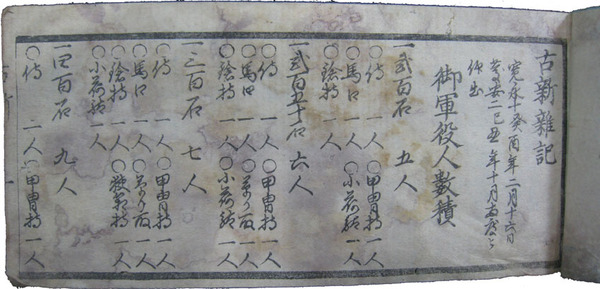 古新雑記
寛永十癸酉年二月十六日
慶安二己丑年十月両度之
御軍役人数積
一弐百石 五人
○侍 一人 ○甲冑持 一人
○馬口 一人 ○小荷駄 一人
○鎗持 一人
一弐百五十石 六人
○侍 一人 ○甲冑持 一人
○馬口 一人 ○草り取 一人
○鎗持 一人 ○小荷駄 一人
一三百石 七人
○侍 一人 ○甲冑持 一人
○馬口 一人 ○草り取 一人
○鎗持 一人 ○挟箱持 一人
○小荷駄 一人
一四百石 九人
○侍 二人 ○甲冑持 一人